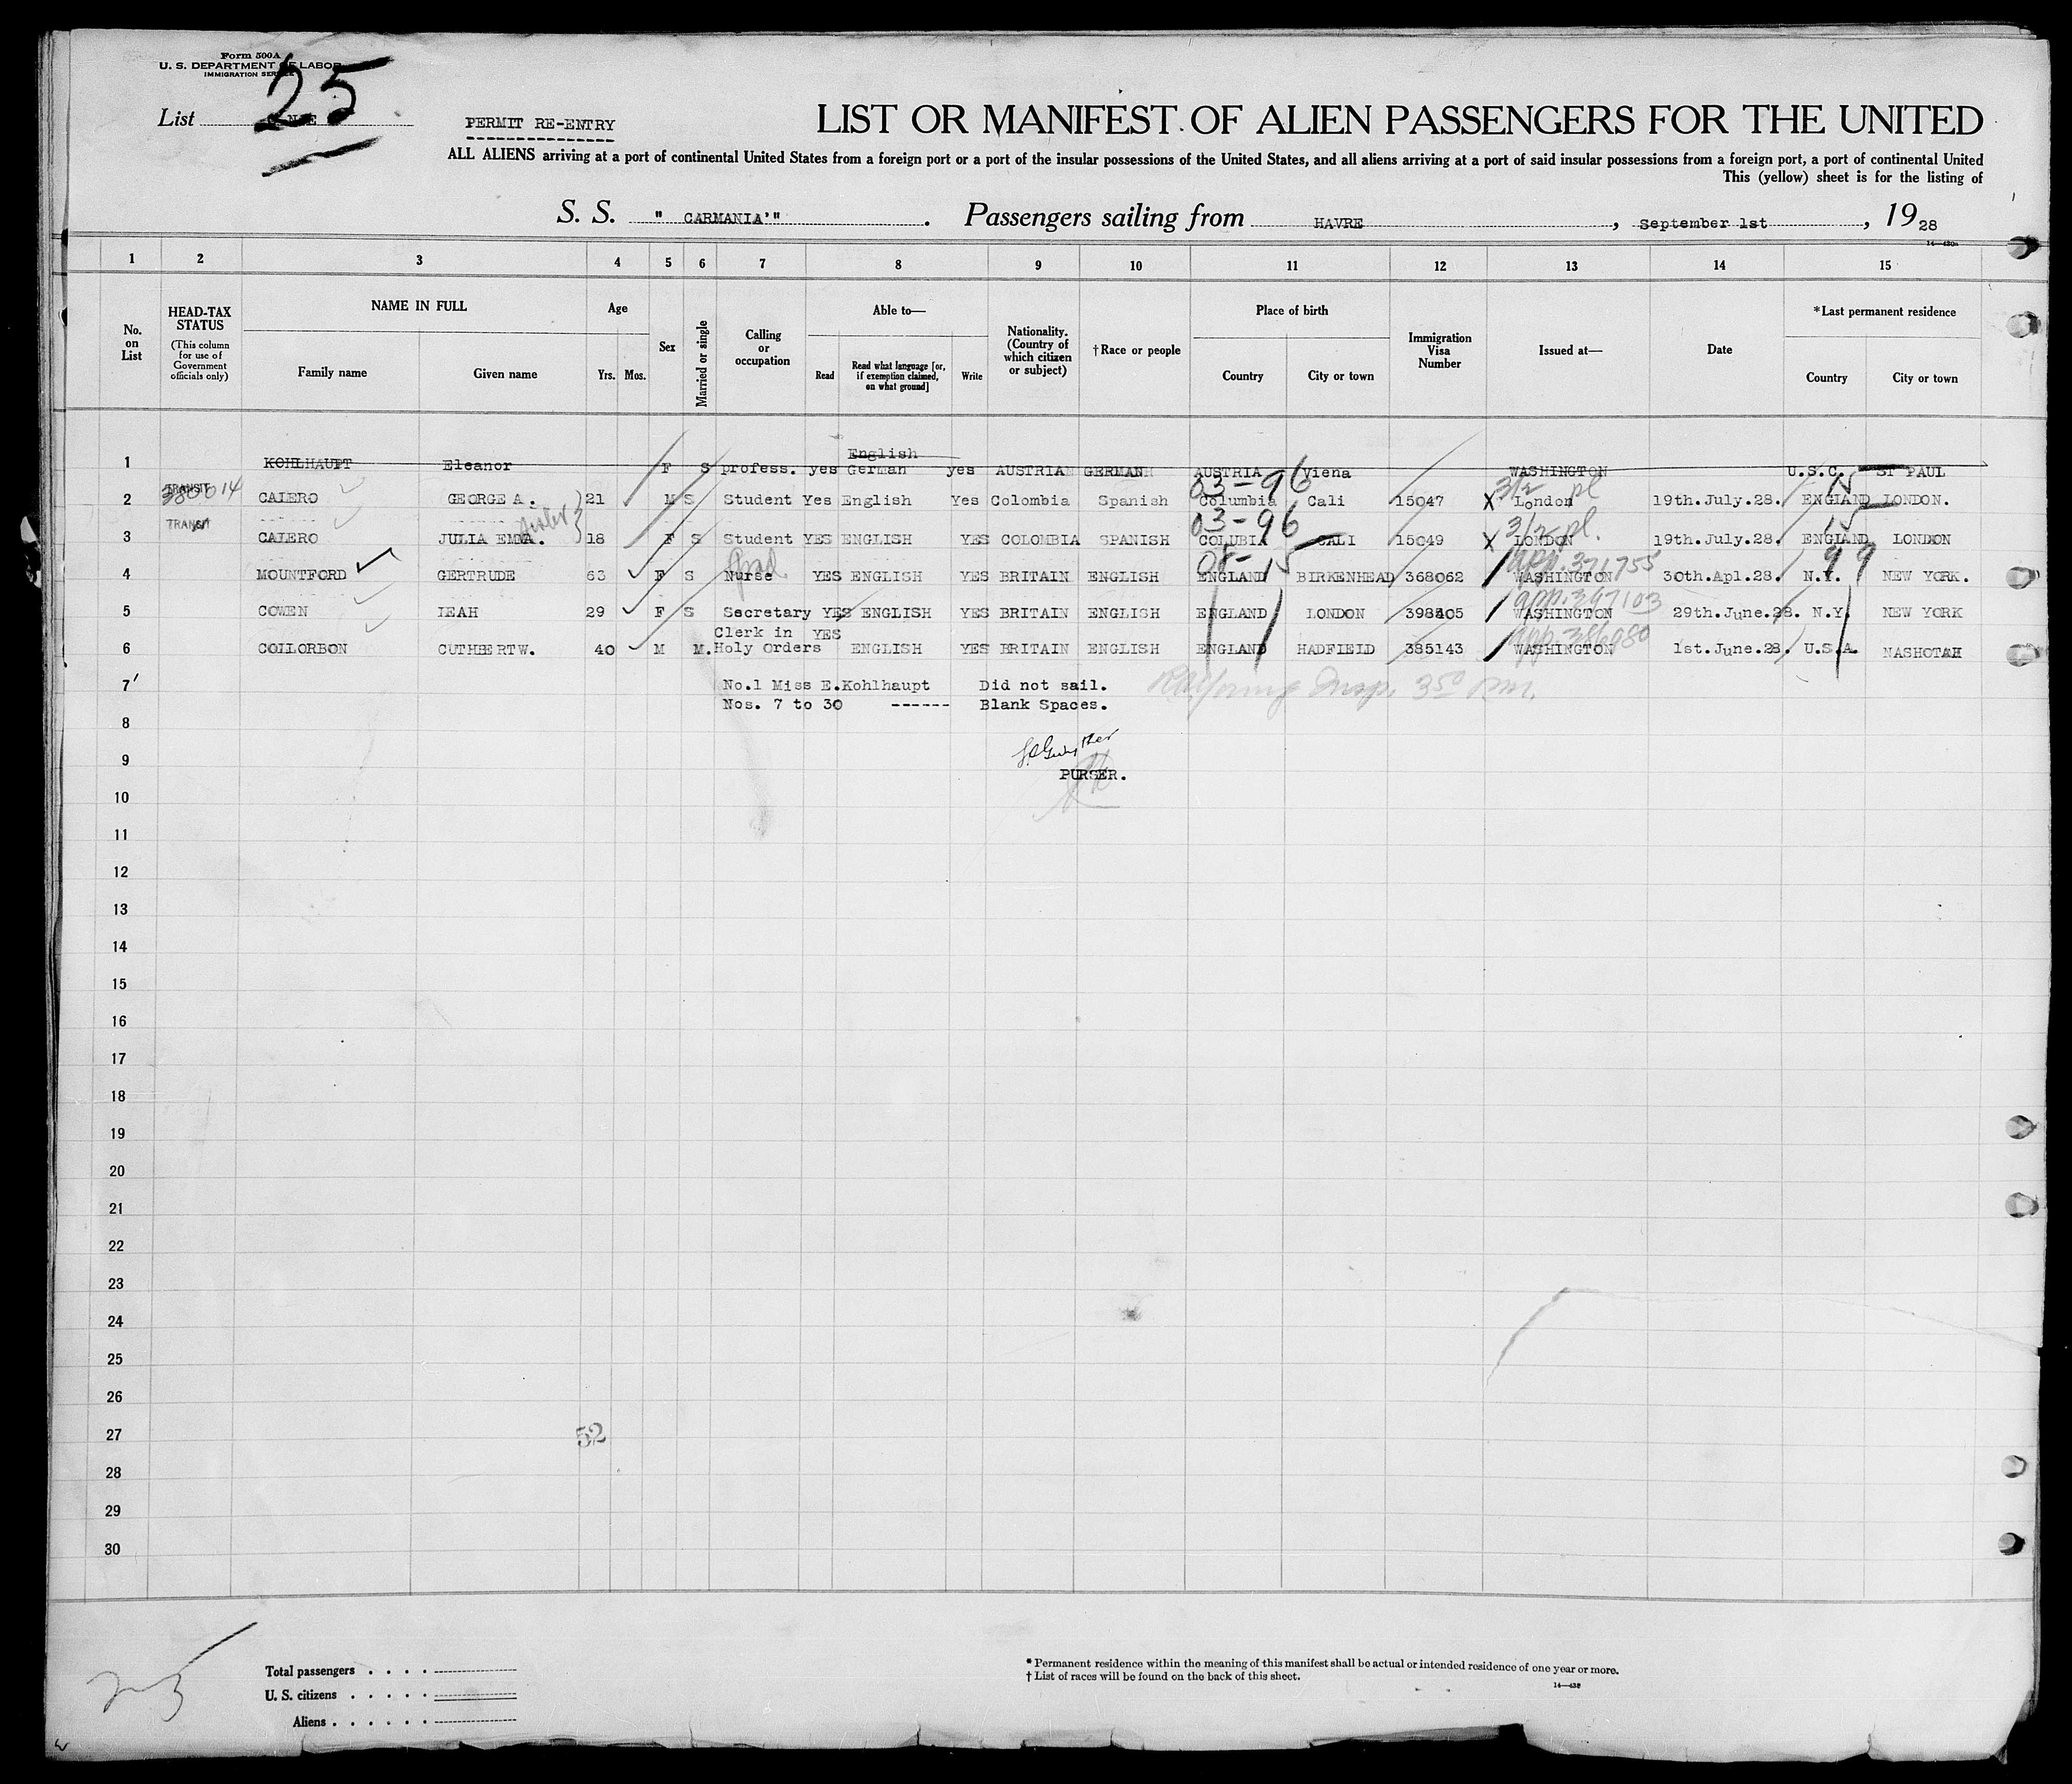 Form 500A
U. S. DEPARTMENT OF LABOR
IMMIGRATION SERVICE
List 25
PERMIT RE-ENTRY
LIST OR MANIFEST OF ALIEN PASSENGERS FOR THE UNITED
ALL ALIENS arriving at a port of continental United States from a foreign port or a port of the insular possessions of the United States, and all aliens arriving at a port of said insular possessions from a foreign port, a port of continental United
This (yellow) sheet is for the listing of
S. S. " CARMANIA'" . Passengers sailing from HAVRE , September 1st , 1928
1 2 3 4 5 6 7 8 9 10 11 12 13 14 15
No. on List
HEAD-TAX STATUS
(This column for use of Government officials only)
NAME IN FULL
Family name Given name
Age
Yrs. Mos.
Sex
Married or single
Calling or occupation
Able to—
Read
Read what language [or, if exemption claimed, on what ground]
Write
Nationality. (Country of which citizen or subject)
†Race or people
Place of birth
Country City or town
Immigration Visa Number
Issued at—
Date
*Last permanent residence
Country City or town
English
1 KOHLHAUPT Eleanor F S profess. yes German yes AUSTRIAN GERMAN AUSTRIA Viena WASHINGTON U.S.C. ST PAUL
TRANSIT 03-96 3/2 pl 15
2 CALERO GEORGE A. 21 M S Student Yes English Yes Colombia Spanish Columbia Cali 15047 X London 19th.July.28. ENGLAND LONDON.
TRANSIT 03-96 3/2 pl. 15
3 CALERO JULIA EMMA. 18 F S Student YES ENGLISH YES COLOMBIA SPANISH COLUBIA CALI 15049 X LONDON 19th.July.28. ENGLAND LONDON
Grad. 08-15 app.371755 99
4 MOUNTFORD GERTRUDE 63 F S Nurse YES ENGLISH YES BRITAIN ENGLISH ENGLAND BIRKENHEAD 368062 WASHINGTON 30th.Apl.28. N.Y. NEW YORK.
app.397103
5 COWEN LEAH 29 F S Secretary YES ENGLISH YES BRITAIN ENGLISH ENGLAND LONDON 398405 WASHINGTON 29th.June.28. N.Y. NEW YORK
Clerk in YES app.386980
6 COLLORBON CUTHBERT W. 40 M M. Holy Orders ENGLISH YES BRITAIN ENGLISH ENGLAND HADFIELD 385143 WASHINGTON 1st.June.28. U.S.A. NASHOTAH
7 No.1 Miss E.Kohlhaupt Did not sail.
Nos. 7 to 30 ------ Blank Spaces.
8
9
PURSER.
10
11
12
13
14
15
16
17
18
19
20
21
22
23
24
25
26
27 52
28
29
30
Total passengers . . . .
U. S. citizens . . . . .
Aliens . . . . . .
* Permanent residence within the meaning of this manifest shall be actual or intended residence of one year or more.
† List of races will be found on the back of this sheet.